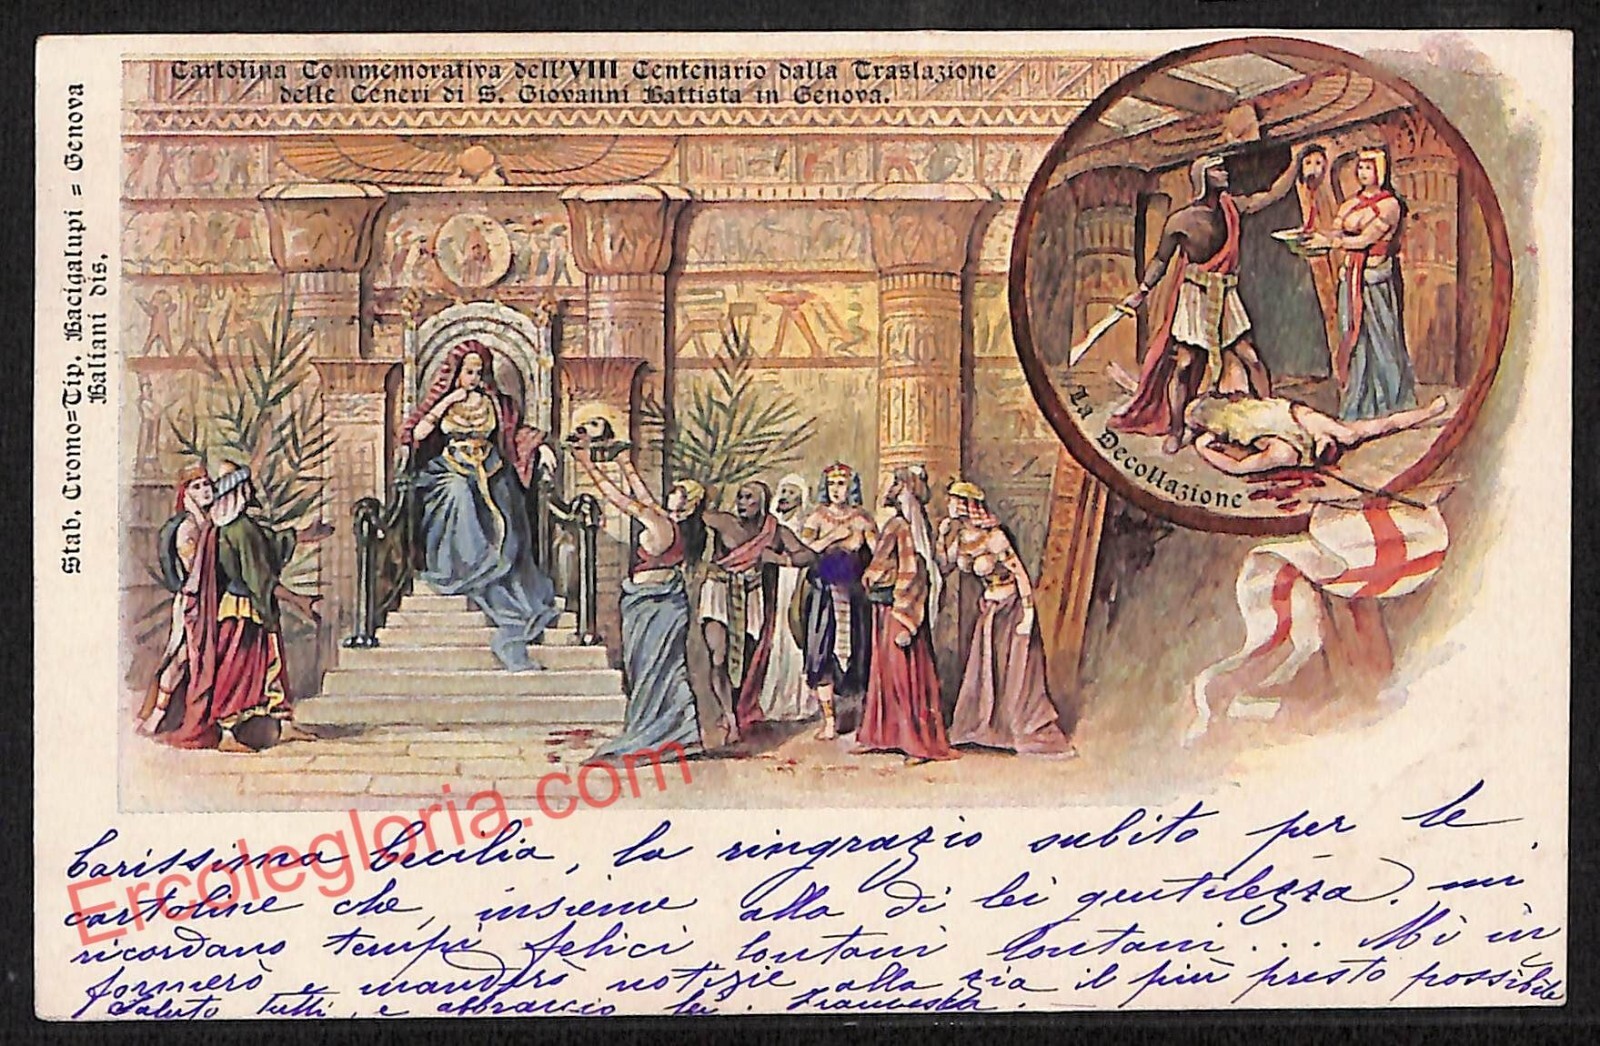 Cartolina Commemorativa dell'VIII Centenario dalla Traslazione
delle Ceneri di S. Giovanni Battista in Genova.
Stab. Cromo=Tip. Bacigalupi = Genova
Baliani dis.
La Decollazione
Carissima Cecilia, la ringrazio subito per le
cartoline che, insieme alla di lei gentilezza, mi
ricordano tempi felici, lontani lontani... Mi in
formerò e manderò notizie alla zia il più presto possibile
Saluto tutti, e abbraccio lei. Francesca.
Ercolegloria.com